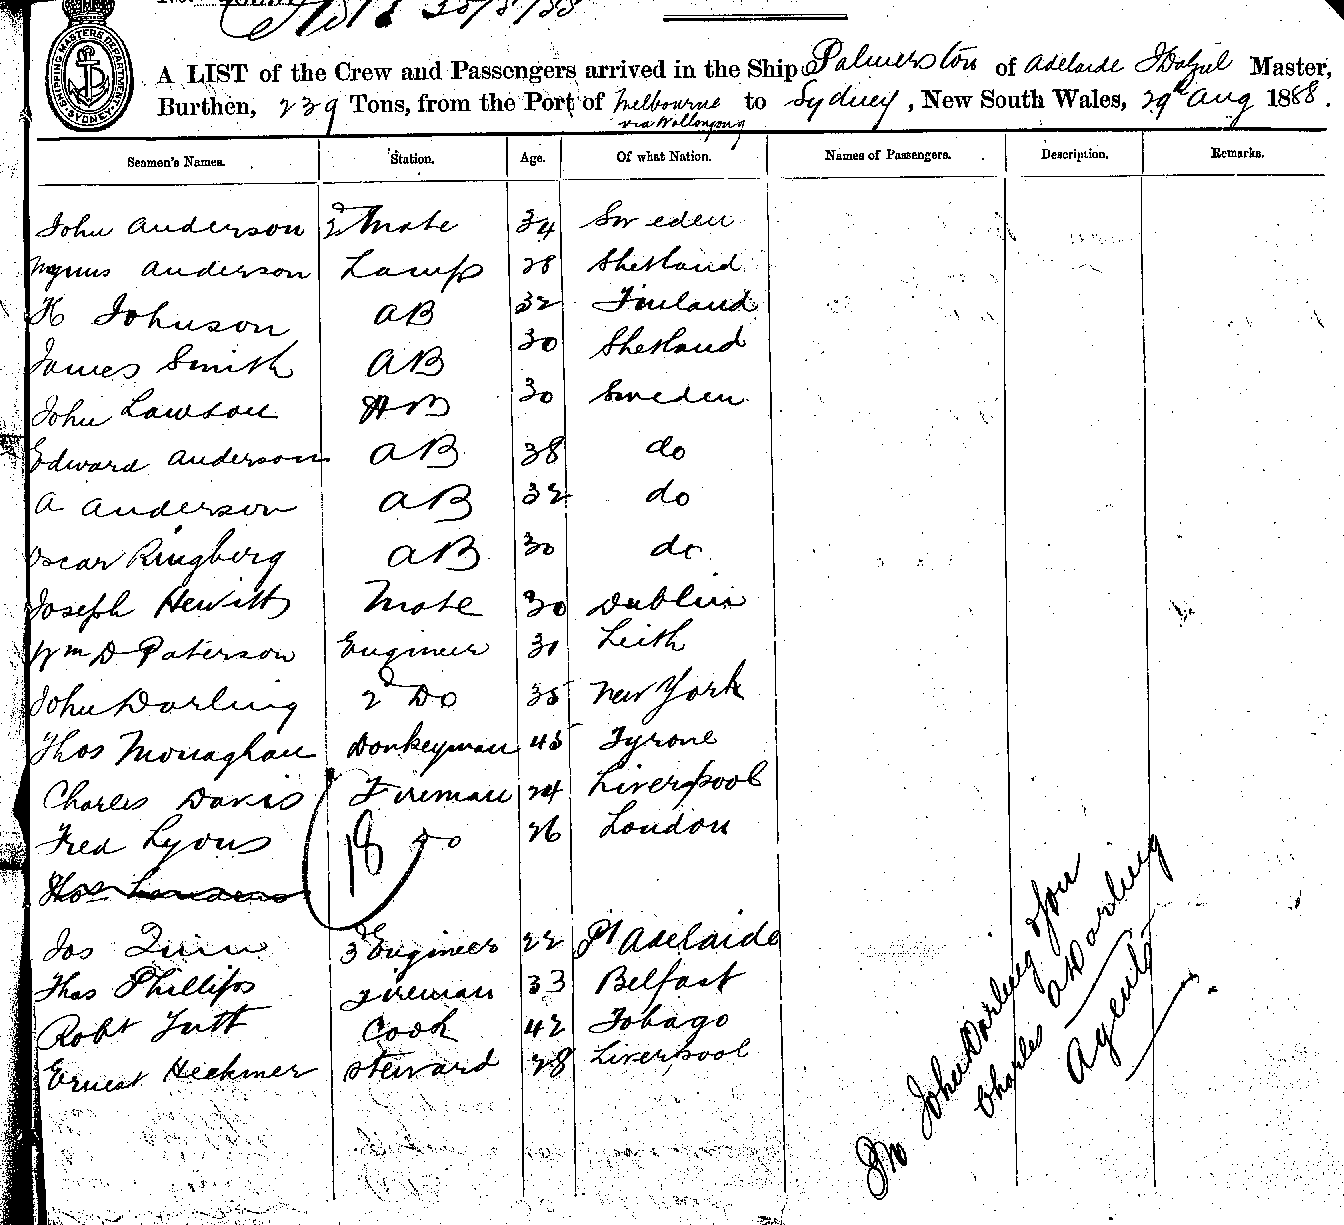 A LIST of the Crew and Passengers arrived in the Ship Palmerston of Adelaide J Dalziel Master,
Burthen, 239 Tons, from the Port of Melbourne to Sydney, New South Wales, 29th Aug 1888.
via Wollongong
Seamen's Names. Station. Age. Of what Nation. Names of Passengers. Description. Remarks.
John Anderson 2d Mate 34 Sweden
Magnus Anderson Lamps 28 Shetland
K Johnson AB 32 Finland
James Smith AB 30 Shetland
John Lawson AB 30 Sweden
Edward Anderson AB 38 do
A Anderson AB 32 do
Oscar Ringberg AB 30 do
Joseph Hewitt Mate 30 Dublin
Wm D Paterson Engineer 31 Leith
John Darling 2d Do 35 New York
Thos Monaghan Donkeyman 45 Tyrone
Charles Davis Fireman 24 Liverpool
Fred Lyons do 26 London
18
Jos Quinn 3d Engineer 22 Pt Adelaide
Thos Phillips Fireman 33 Belfast
Robt Tutt Cook 42 Tobago
Ernest Heckmer Steward 28 Liverpool
Pro John Darling & Son
Charles A Darling
Agents
SHIPPING MASTERS DEPARTMENT
SYDNEY